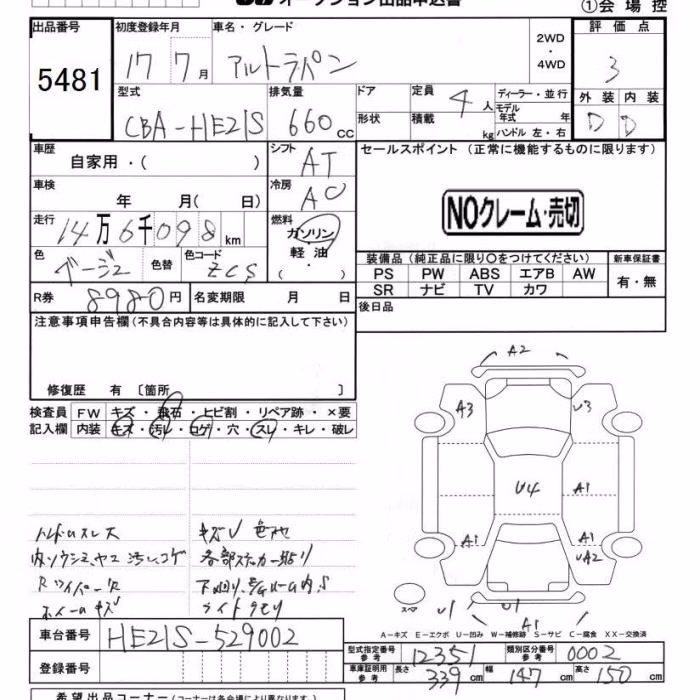 オークション出品申込書
①会場控
出品番号 初度登録年月 車名・グレード 2WD・4WD 評価点
5481 17 7月 アルトラパン 3
型式 排気量 ドア 定員 4人 ディーラー・並行 外装 内装
CBA-HE21S 660cc 形状 積載 kg モデル年式 年 ハンドル 左・右 D D
車歴 自家用・( ) シフト AT セールスポイント (正常に機能するものに限ります)
車検 年 月( 日) 冷房 AC
NOクレーム・売切
走行 14万6千098km 燃料 ガソリン・軽油 ( )
色 ベージュ 色替 色コード ZCS
装備品 (純正品に限り○をつけてください) 新車保証書
PS PW ABS エアB AW 有・無
SR ナビ TV カワ
R券 8980円 名変期限 月 日 後日品
注意事項申告欄(不具合内容等は具体的に記入して下さい)
修復歴 有 〔箇所 〕
検査員記入欄 FW キズ・飛石・ヒビ割・リペア跡・×要
内装 キズ・汚レ・コゲ・穴・スレ・キレ・破レ
ハンドルスレ大 キズU
内ソウシミ、ヤニ汚レコゲ 各部ステッカー貼り
Rワイパー欠 下回り、
ホイールキズ ライトクモリ
A2
A3 U3
U4 A1
A1 A1
UA2
スペア U1 U1
A1
A-キズ E-エクボ U-凹み W-補修跡 S-サビ C-腐食 XX-交換済
車台番号 HE21S-529002
型式指定番号 参考 12351 類別区分番号 参考 0002
登録番号
車庫証明用 参考 長さ 339cm 幅 147cm 高さ 150cm
希望出品コーナー